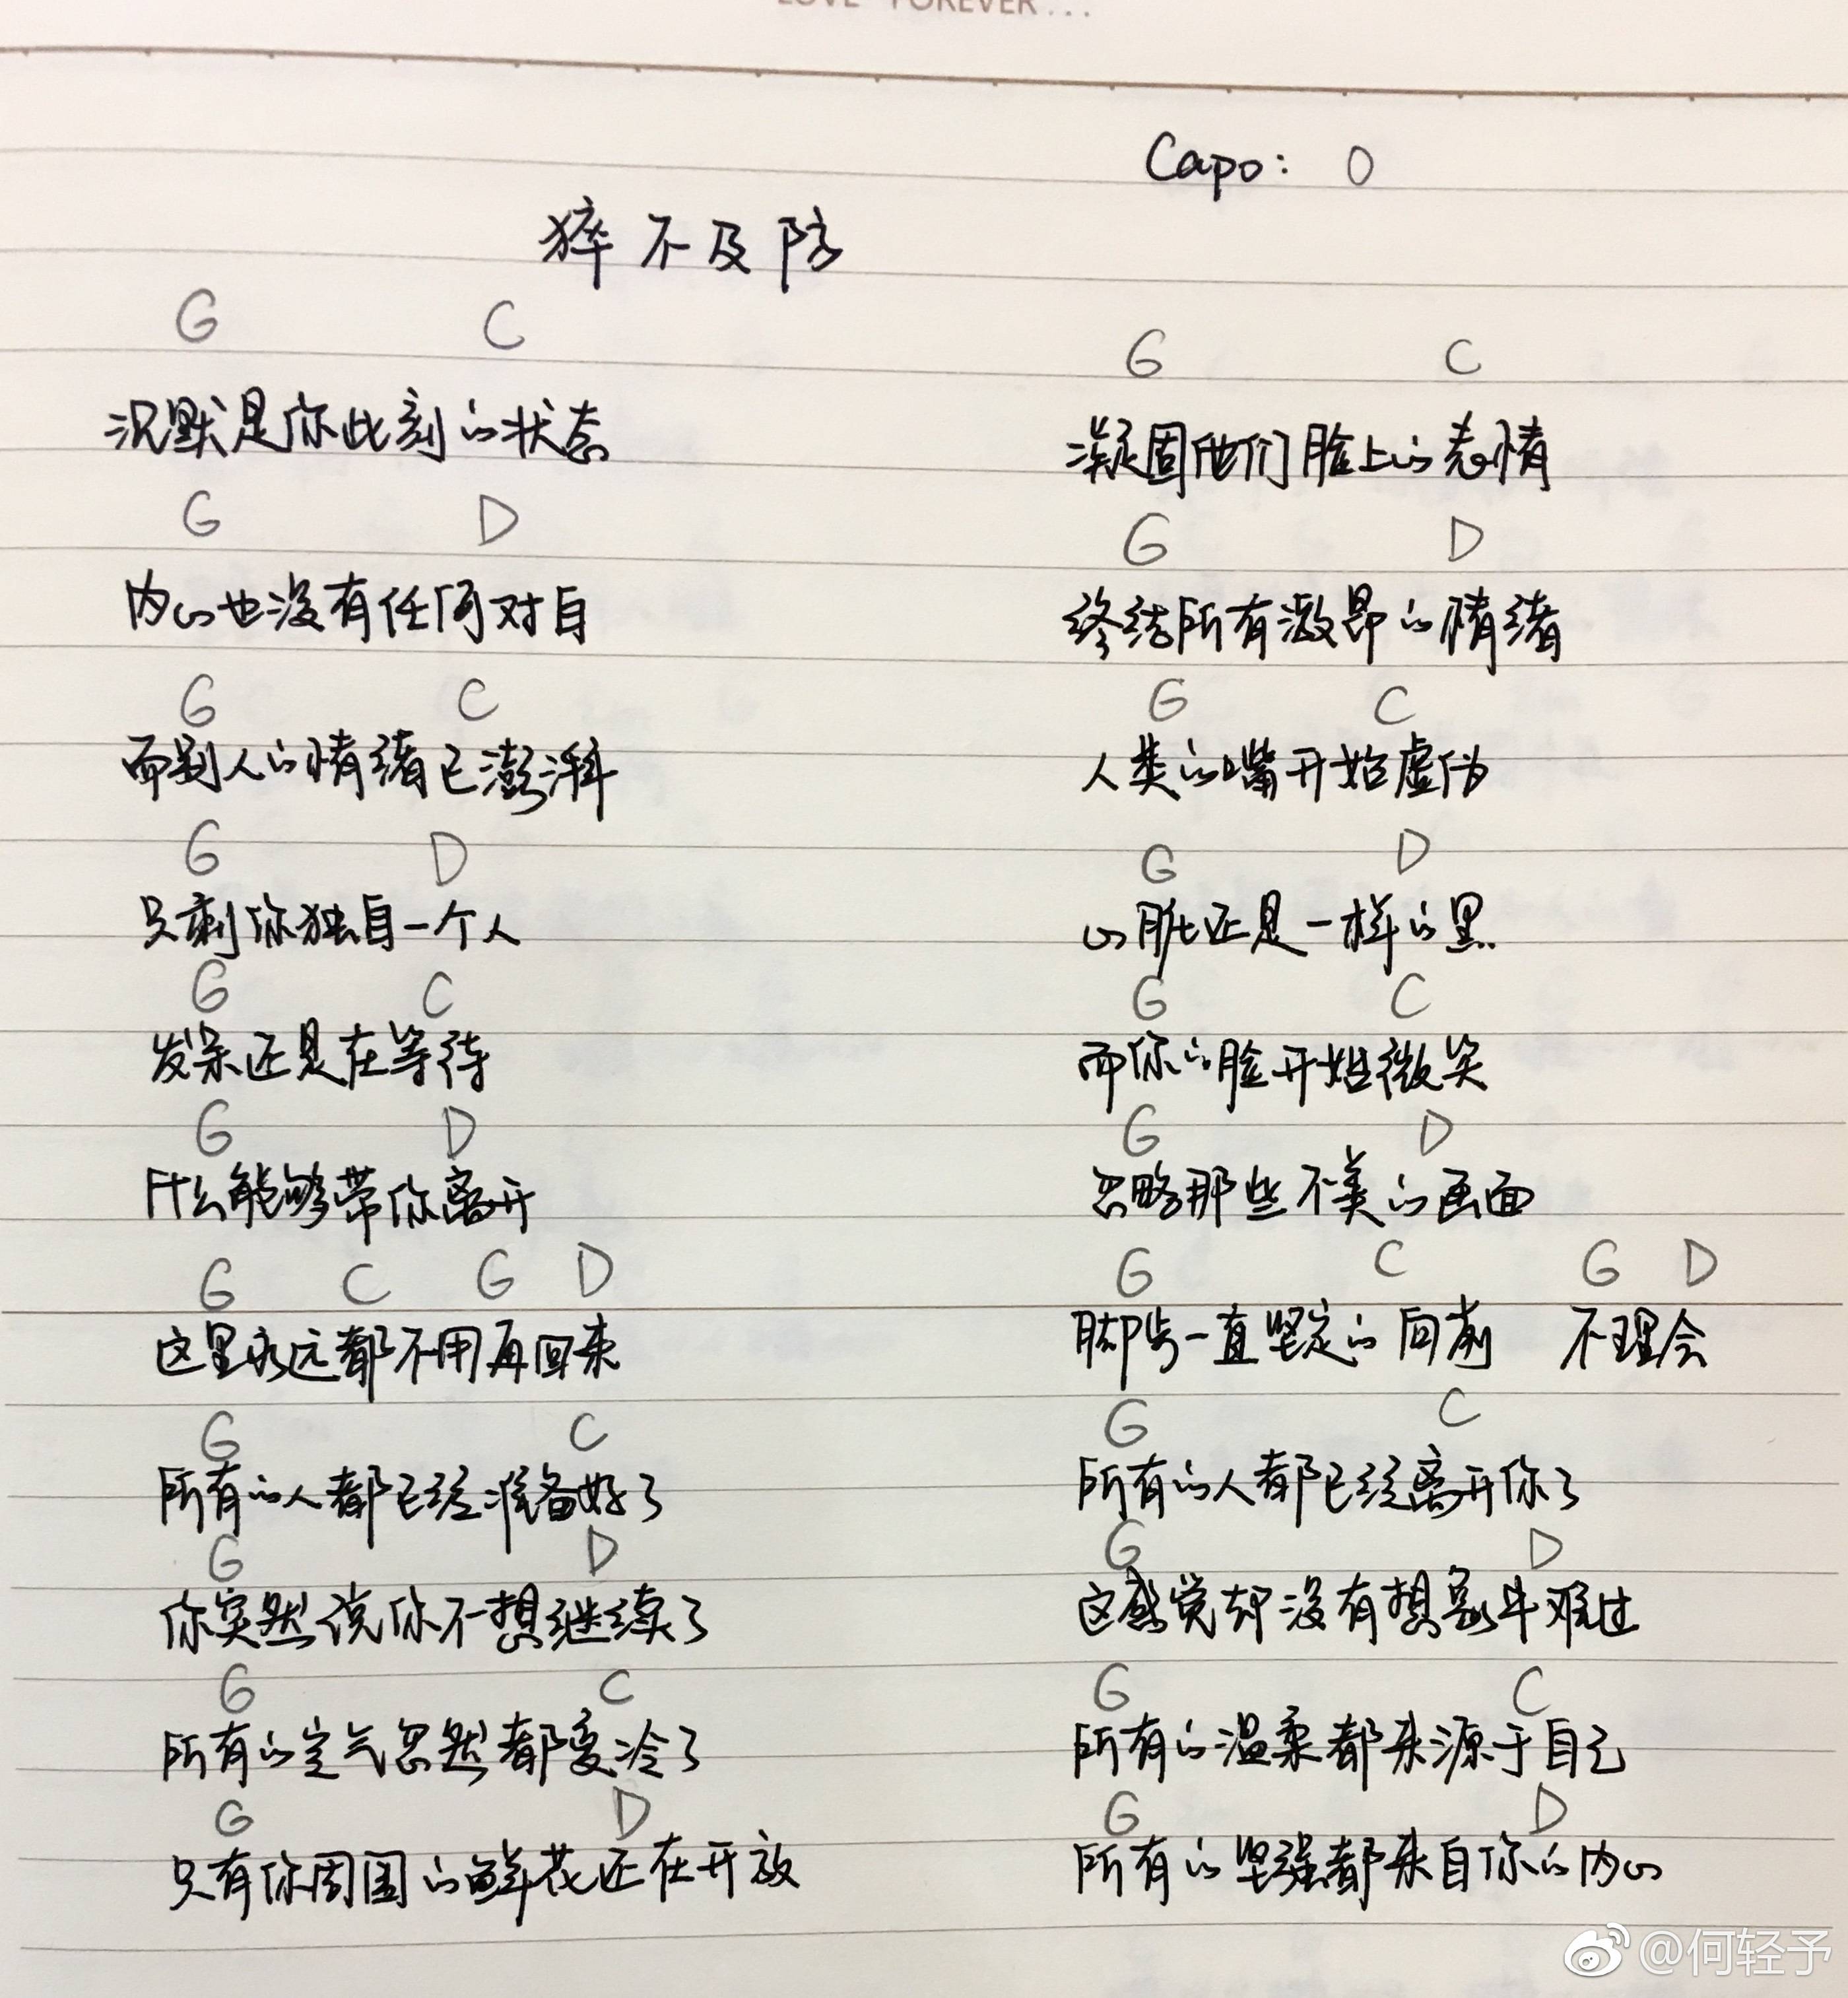 LOVE FOREVER...
Capo: 0
猝不及防
G C
沉默是你此刻的状态
G D
内心也没有任何对白
G C
而别人的情绪已澎湃
G D
只剩你独自一个人
G C
发呆还是在等待
G D
什么能够带你离开
G C G D
这里永远都不用再回来
G C
所有的人都已经准备好了
G D
你突然说你不想继续了
G C
所有的空气忽然都变冷了
G D
只有你周围的鲜花还在开放
G C
凝固他们脸上的表情
G D
终结所有激昂的情绪
G C
人类的嘴开始虚伪
G D
心脏还是一样的黑
G C
而你的脸开始微笑
G D
忽略那些不美的画面
G C G D
脚步一直坚定的向前 不理会
G C
所有的人都已经离开你了
G D
这感觉却没有想象中难过
G C
所有的温柔都来源于自己
G D
所有的坚强都来自你的内心
@何轻予